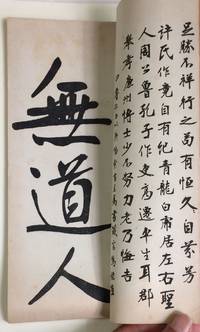 足勝不祥行之苟有恒久々自芬芳
許氏作竟自有紀青龍白虎居左右聖
人周公魯孔子作吏高遷車生耳郡
舉孝廉州博士少不努力老乃悔吉
無道人